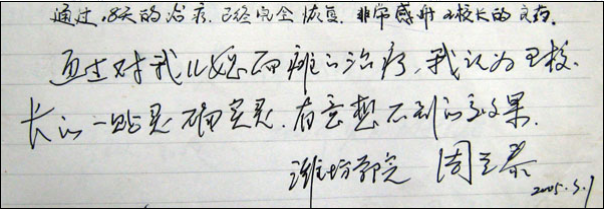 通过18天的治疗.已经完全恢复.非常感谢王校长的灵药.
通过对我儿媳面瘫的治疗,我认为王校
长的一贴灵确实灵.有意想不到的好效果.
潍坊学院 周立泰
2005.3.9